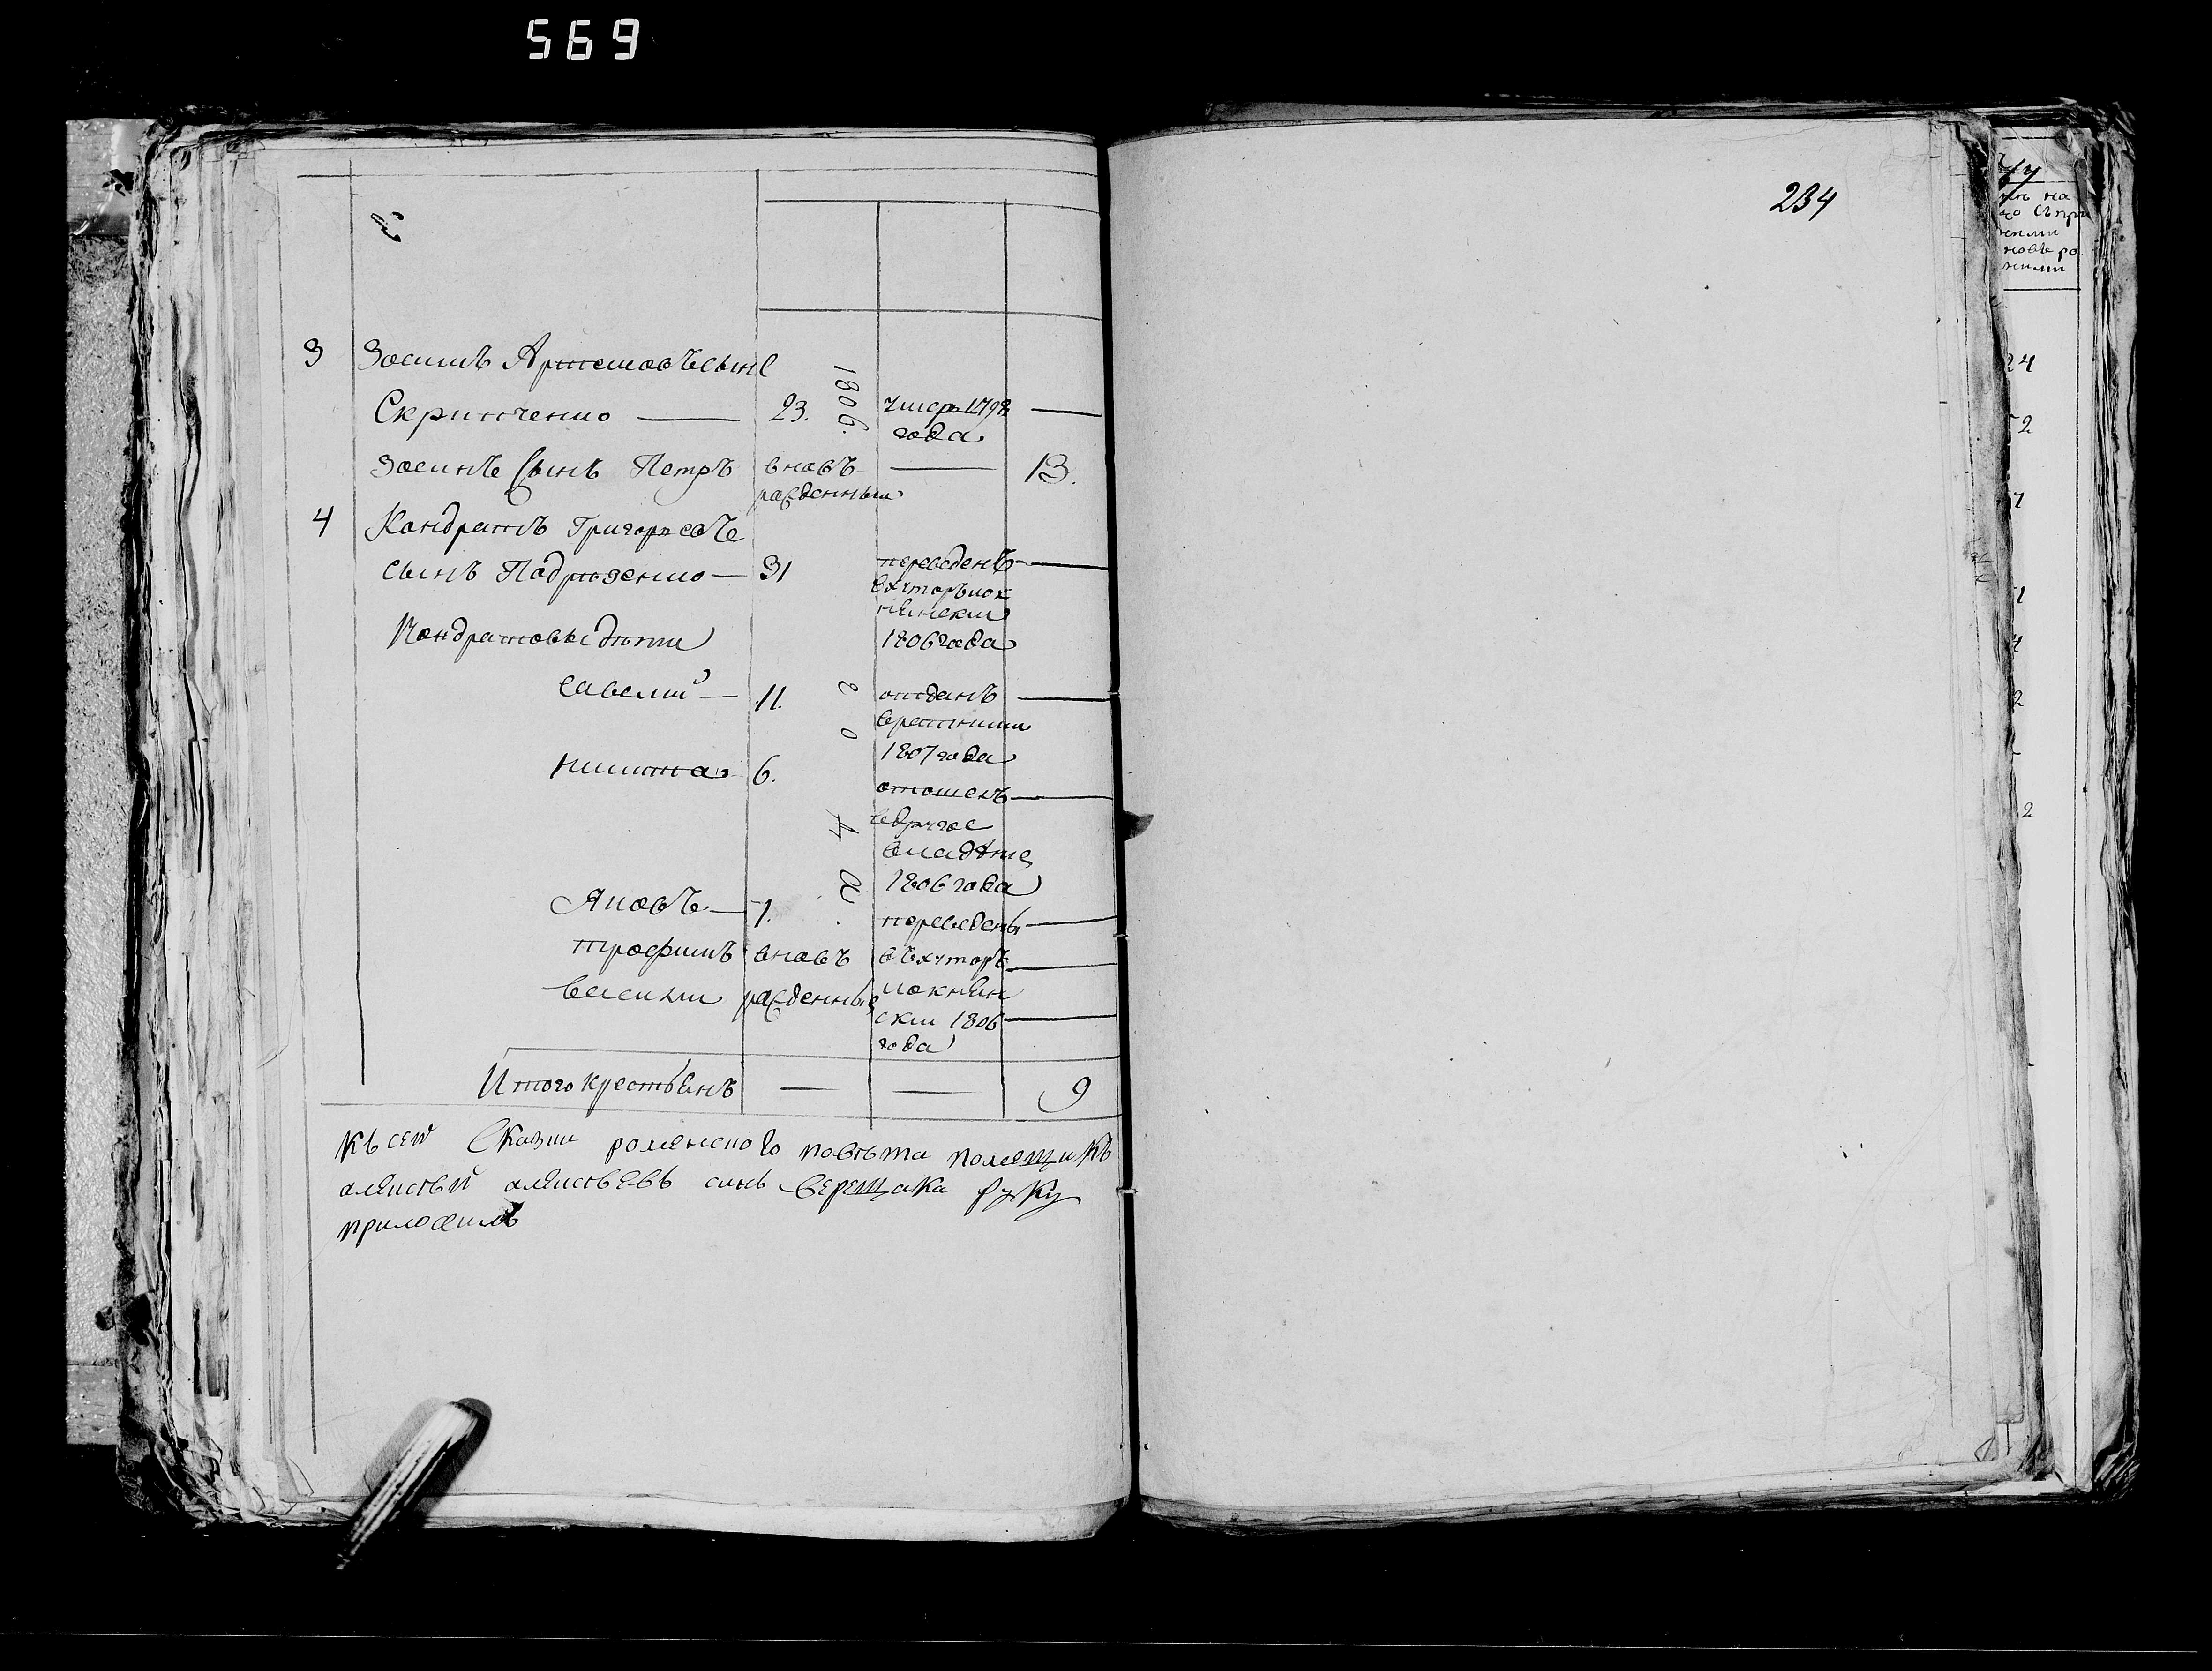 569
234
3 Зосимъ Артемовъ сынъ
Скрипченко — 23. умеръ 1798 —
года
Зосимъ Сынъ Петръ вновь — 13.
рожденный
4 Кондратъ Григорьевъ
сынъ Подрѣзенко — 31 переведенъ —
въхуторъ лок
нѣнскии
Кондратовы дѣти 1806 года
савелий — 11. отданъ —
врекруты
1807 года
никита 6. отошелъ —
вдругое
владѣние
1806 года
Яковъ — 1. переведены —
трофимъ вновь въхуторъ —
василии рожденные локнѣн
скии 1806 —
года
1806. года
Итого крестьянъ — — 9
Къ сей Сказки роменского повѣта помещикъ
алексѣй алексѣевъ синъ верещака руку
приложилъ
24
2
7
1
4
2
2